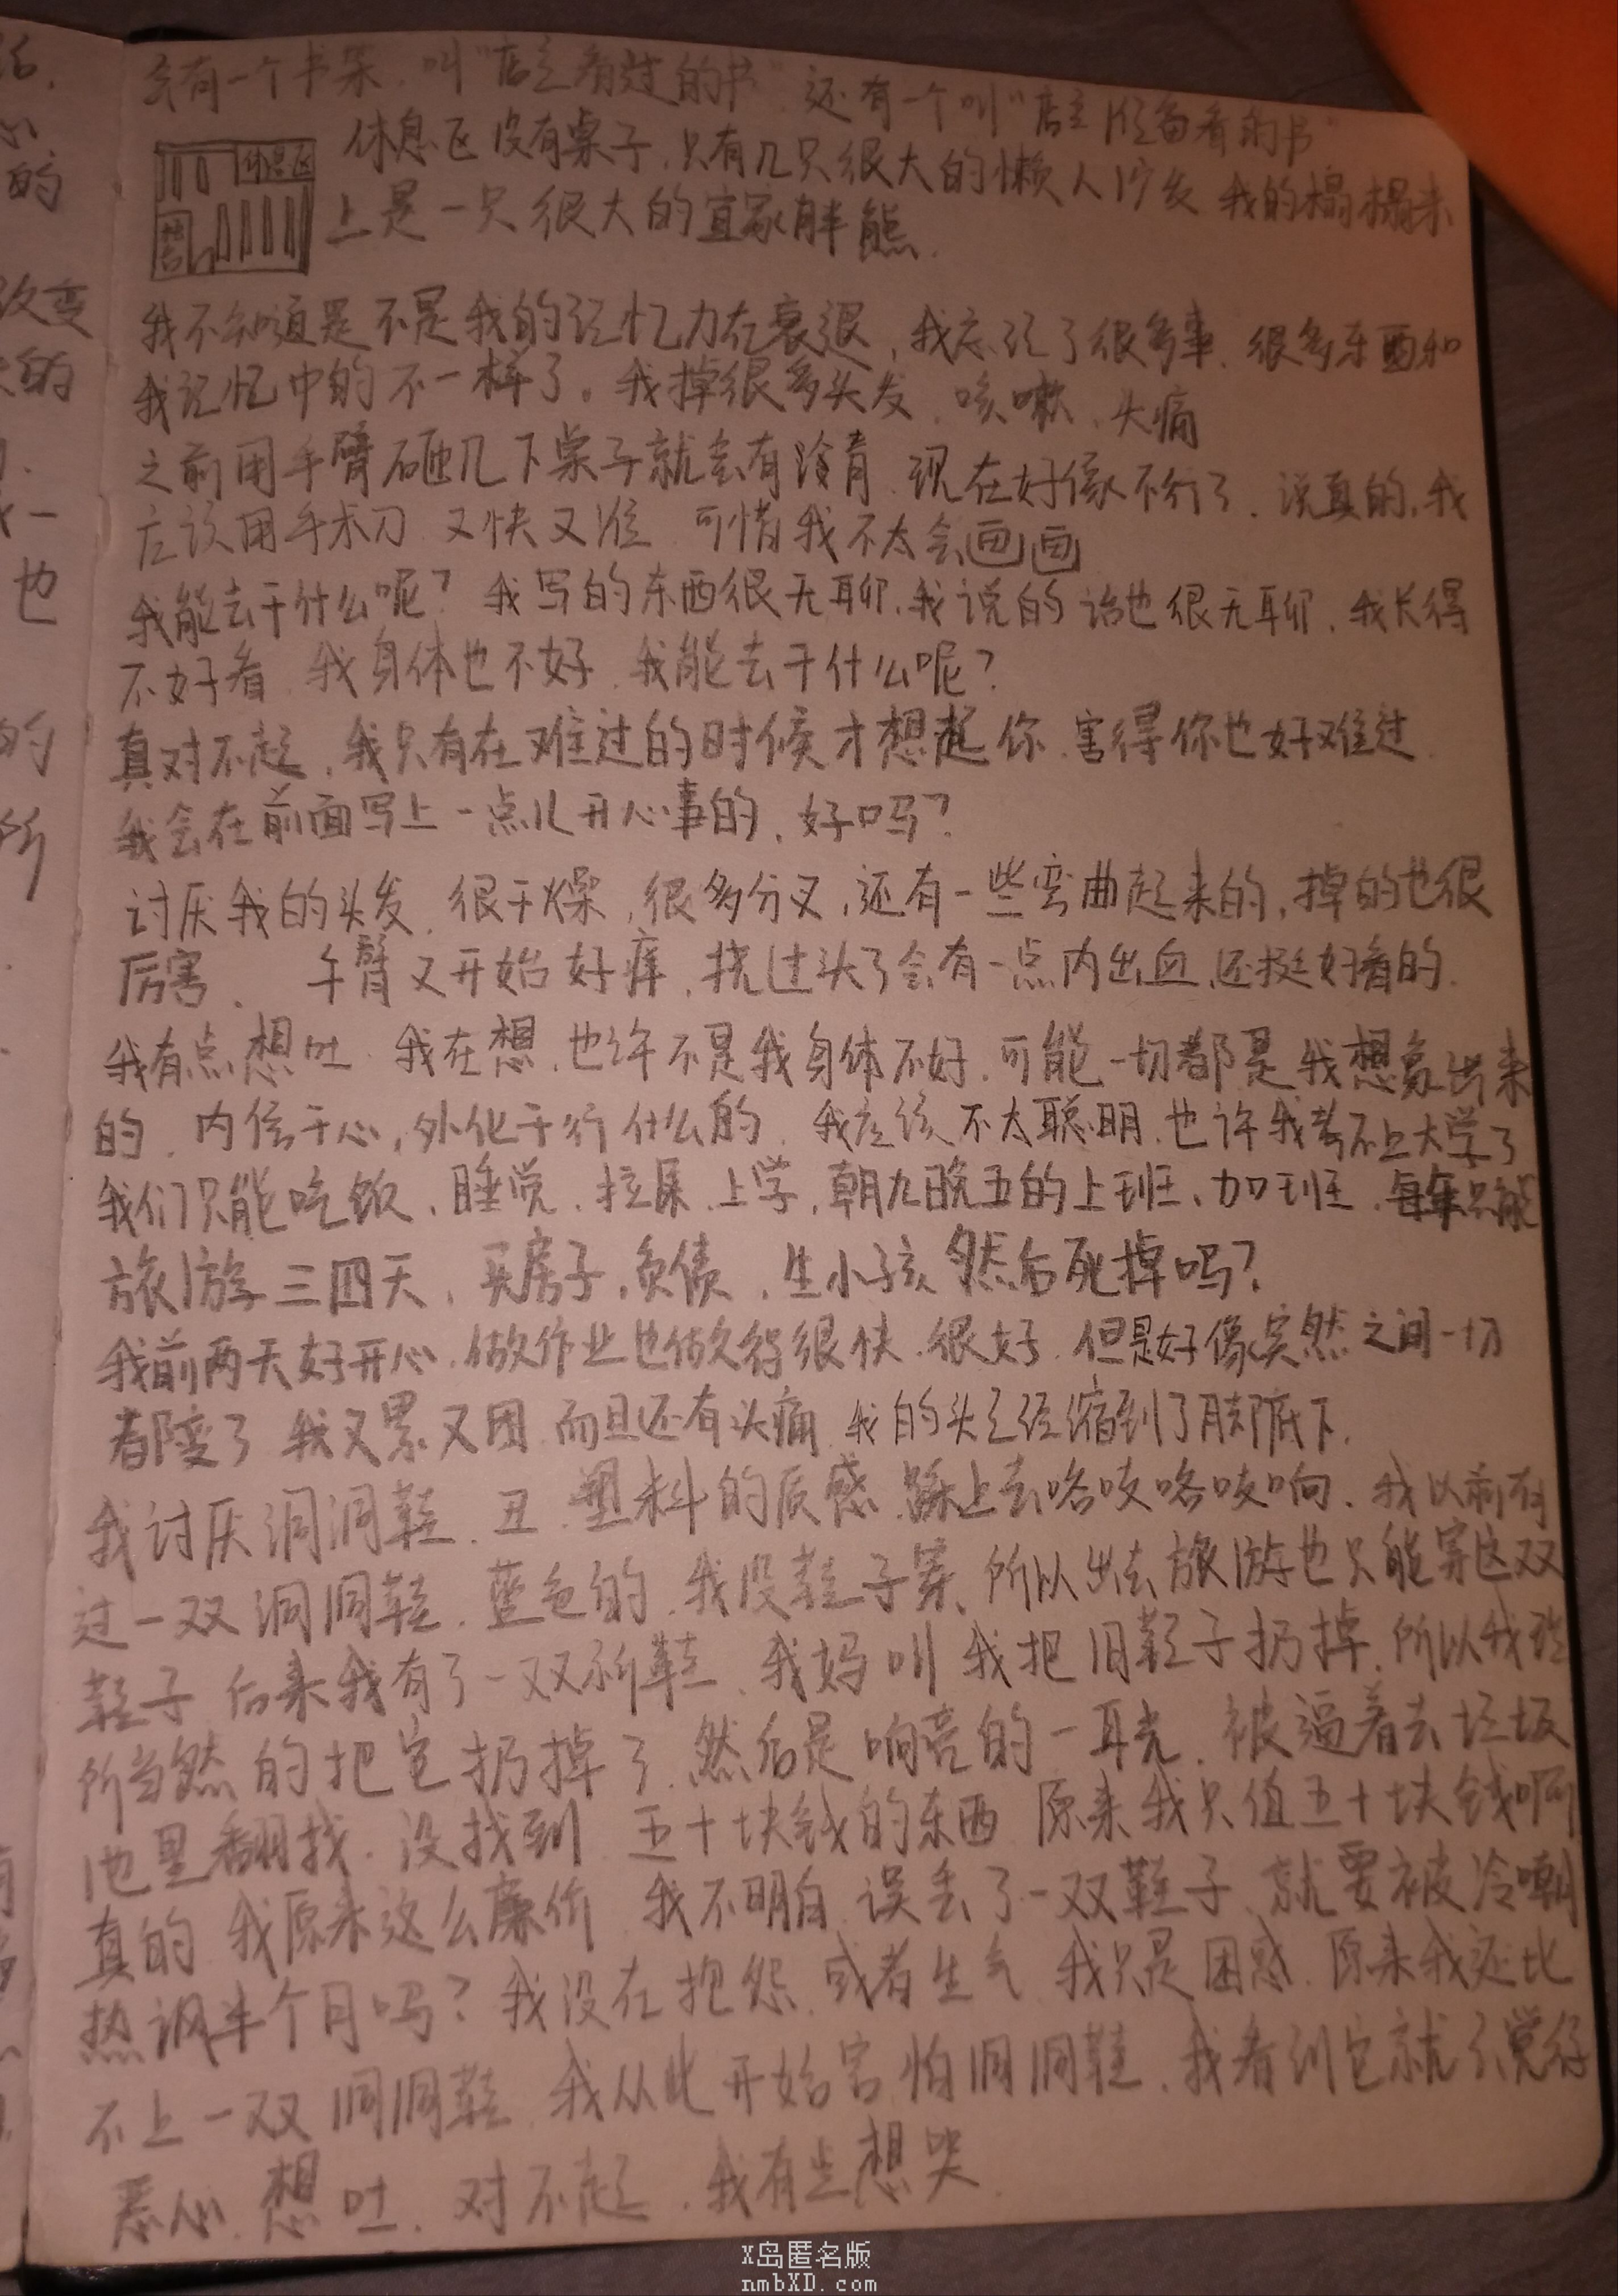 会有一个书架, 叫"店主看过的书" 还有一个叫"店主准备看的书"
休息区
休息区没有桌子,只有几只很大的懒人沙发 我的榻榻米
上是一只很大的宜家胖熊.
我不知道是不是我的记忆力在衰退,我忘记了很多事.很多东西和
我记忆中的不一样了。我掉很多头发、咳嗽、头痛
之前用手臂砸几下桌子就会有淤青.现在好像不行了.说真的,我
应该用手术刀 又快又准 可惜我不太会画画
我能去干什么呢?我写的东西很无聊,我说的话也很无聊.我长得
不好看.我身体也不好.我能去干什么呢?
真对不起,我只有在难过的时候才想起你.害得你也好难过.
我会在前面写上一点儿开心事的,好吗?
讨厌我的头发.很干燥,很多分叉,还有一些弯曲起来的,掉的也很
厉害. 手臂又开始好痒,挠过头了会有一点内出血,还挺好看的.
我有点想吐.我在想,也许不是我身体不好.可能一切都是我想象出来
的.内信于心,外化于行什么的.我应该不太聪明.也许我考不上大学了
我们只能吃饭、睡觉、拉屎、上学,朝九晚五的上班、加班,每年只能
旅游三四天,买房子,负债,生小孩 然后死掉吗?
我前两天好开心.做作业也做得很快.很好.但是好像突然之间一切
都变了 我又累又困 而且还有头痛.我的头已经缩到了脚底下.
我讨厌洞洞鞋.丑.塑料的质感.踩上去咯吱咯吱响.我以前有
过一双洞洞鞋.蓝色的.我没鞋子穿,所以出去旅游也只能穿这双
鞋子 后来我有了一双新鞋.我妈叫我把旧鞋子扔掉.所以我理
所当然的把它扔掉了.然后是响亮的一耳光.被逼着去垃圾
池里翻找.没找到 五十块钱的东西 原来我只值五十块钱啊
真的 我原来这么廉价 我不明白 误丢了一双鞋子,就要被冷嘲
热讽半个月吗?我没在抱怨 或者生气 我只是困惑.原来我还比
不上一双洞洞鞋.我从此开始害怕洞洞鞋.我看到它就觉得
恶心.想吐.对不起.我有点想哭.
X岛匿名版
nmbXD.com